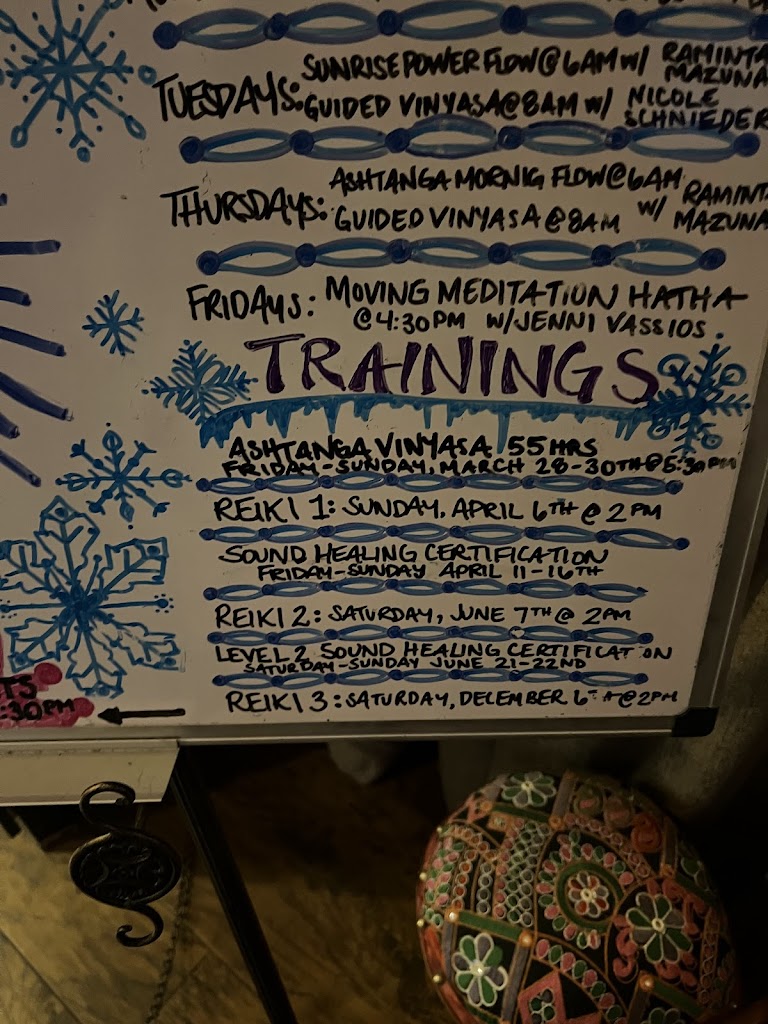 TUESDAYS: SUNRISE POWER FLOW @ 6AM w/ RAMINTA MAZUNA
GUIDED VINYASA @ 8AM w/ NICOLE SCHNIEDER
THURSDAYS: ASHTANGA MORNIG FLOW @ 6AM
GUIDED VINYASA @ 8AM w/ RAMINT MAZUNA
FRIDAYS: MOVING MEDITATION HATHA
@ 4:30PM W/JENNI VASSIOS
TRAININGS
ASHTANGA VINYASA 55HRS
FRIDAY-SUNDAY, MARCH 28-30TH @ 5:30PM
REIKI 1: SUNDAY, APRIL 6TH @ 2PM
SOUND HEALING CERTIFICATION
FRIDAY-SUNDAY APRIL 11-16TH
REIKI 2: SATURDAY, JUNE 7TH @ 2PM
LEVEL 2 SOUND HEALING CERTIFICATION
SATURDAY-SUNDAY JUNE 21-22ND
REIKI 3: SATURDAY, DECEMBER 6TH @ 2PM
TS
:30PM